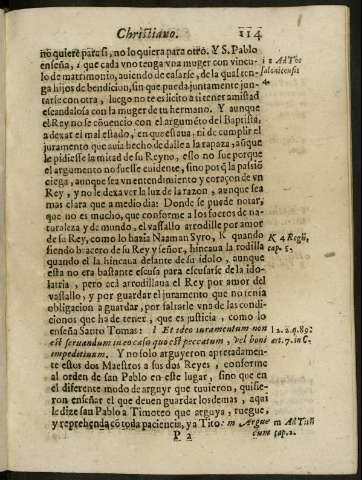 Christiano. 114
no quiere para si, no lo quiera para otro. Y S. Pablo
enseña, i que cada vno tenga vna muger con vincu-
lo de matrimonio, auiendo de casarse, de la qual ten-
ga hijos de bendicion, sin que pueda juntamente jun-
tarse con otra, luego no te es licito a ti tener amistad
escandalosa con la muger de tu hermano. Y aunque
el Rey no se cõuencio con el argumẽto del Baptista,
a dexar el mal estado, en que estaua, ni de cumplir el
juramento que auia hecho de dalle a la rapaza, aũque
le pidiesse la mitad de su Reyno, esso no fue porque
el argumento no fuesse euidente, sino porq̃ la passiõ
ciega, aunque sea vn entendimiento y coraçon de vn
Rey, y no le dexa ver la luz de la razon, aunque sea
mas clara que a medio dia: Donde se puede notar,
que no es mucho, que conforme a los fueros de na-
turaleza y de mundo, el vassallo arrodille por amor
de su Rey, como lo hazia Naaman Syro, K quando
siendo bracero de su Rey y señor, hincaua la rodilla
quando el la hincaua delante de su idolo, aunque
esta no era bastante escusa para escusarse de la ido-
latria, pero acà arrodillaua el Rey por amor del
vassallo, y por guardar el juramento que no tenia
obligacion a guardar, por faltarle vna de las condi-
ciones que ha de tener, que es justicia, como lo
enseña Santo Tomas: l Et ideo iuramentum non
est seruandum in eo casu quo est peccatum, vel boni
impeditiuum. Y no solo arguyeron apretadamen-
te estos dos Maestros a sus dos Reyes, conforme
al orden de san Pablo en este lugar, sino que en
el diferente modo de arguyr que tuuieron, quisie-
ron enseñar el que deuen guardar los demas, aqui
le dize san Pablo a Timoteo que arguya, ruegue,
y reprehenda cõ toda paciencia, y a Tito: m Argue
P 2
i 1. Ad Thes
salonicensis
4.
K 4 Regũ,
cap. 5.
l 2. 2. q. 89.
art. 7. in C.
m Ad Titũ
cap. 2.